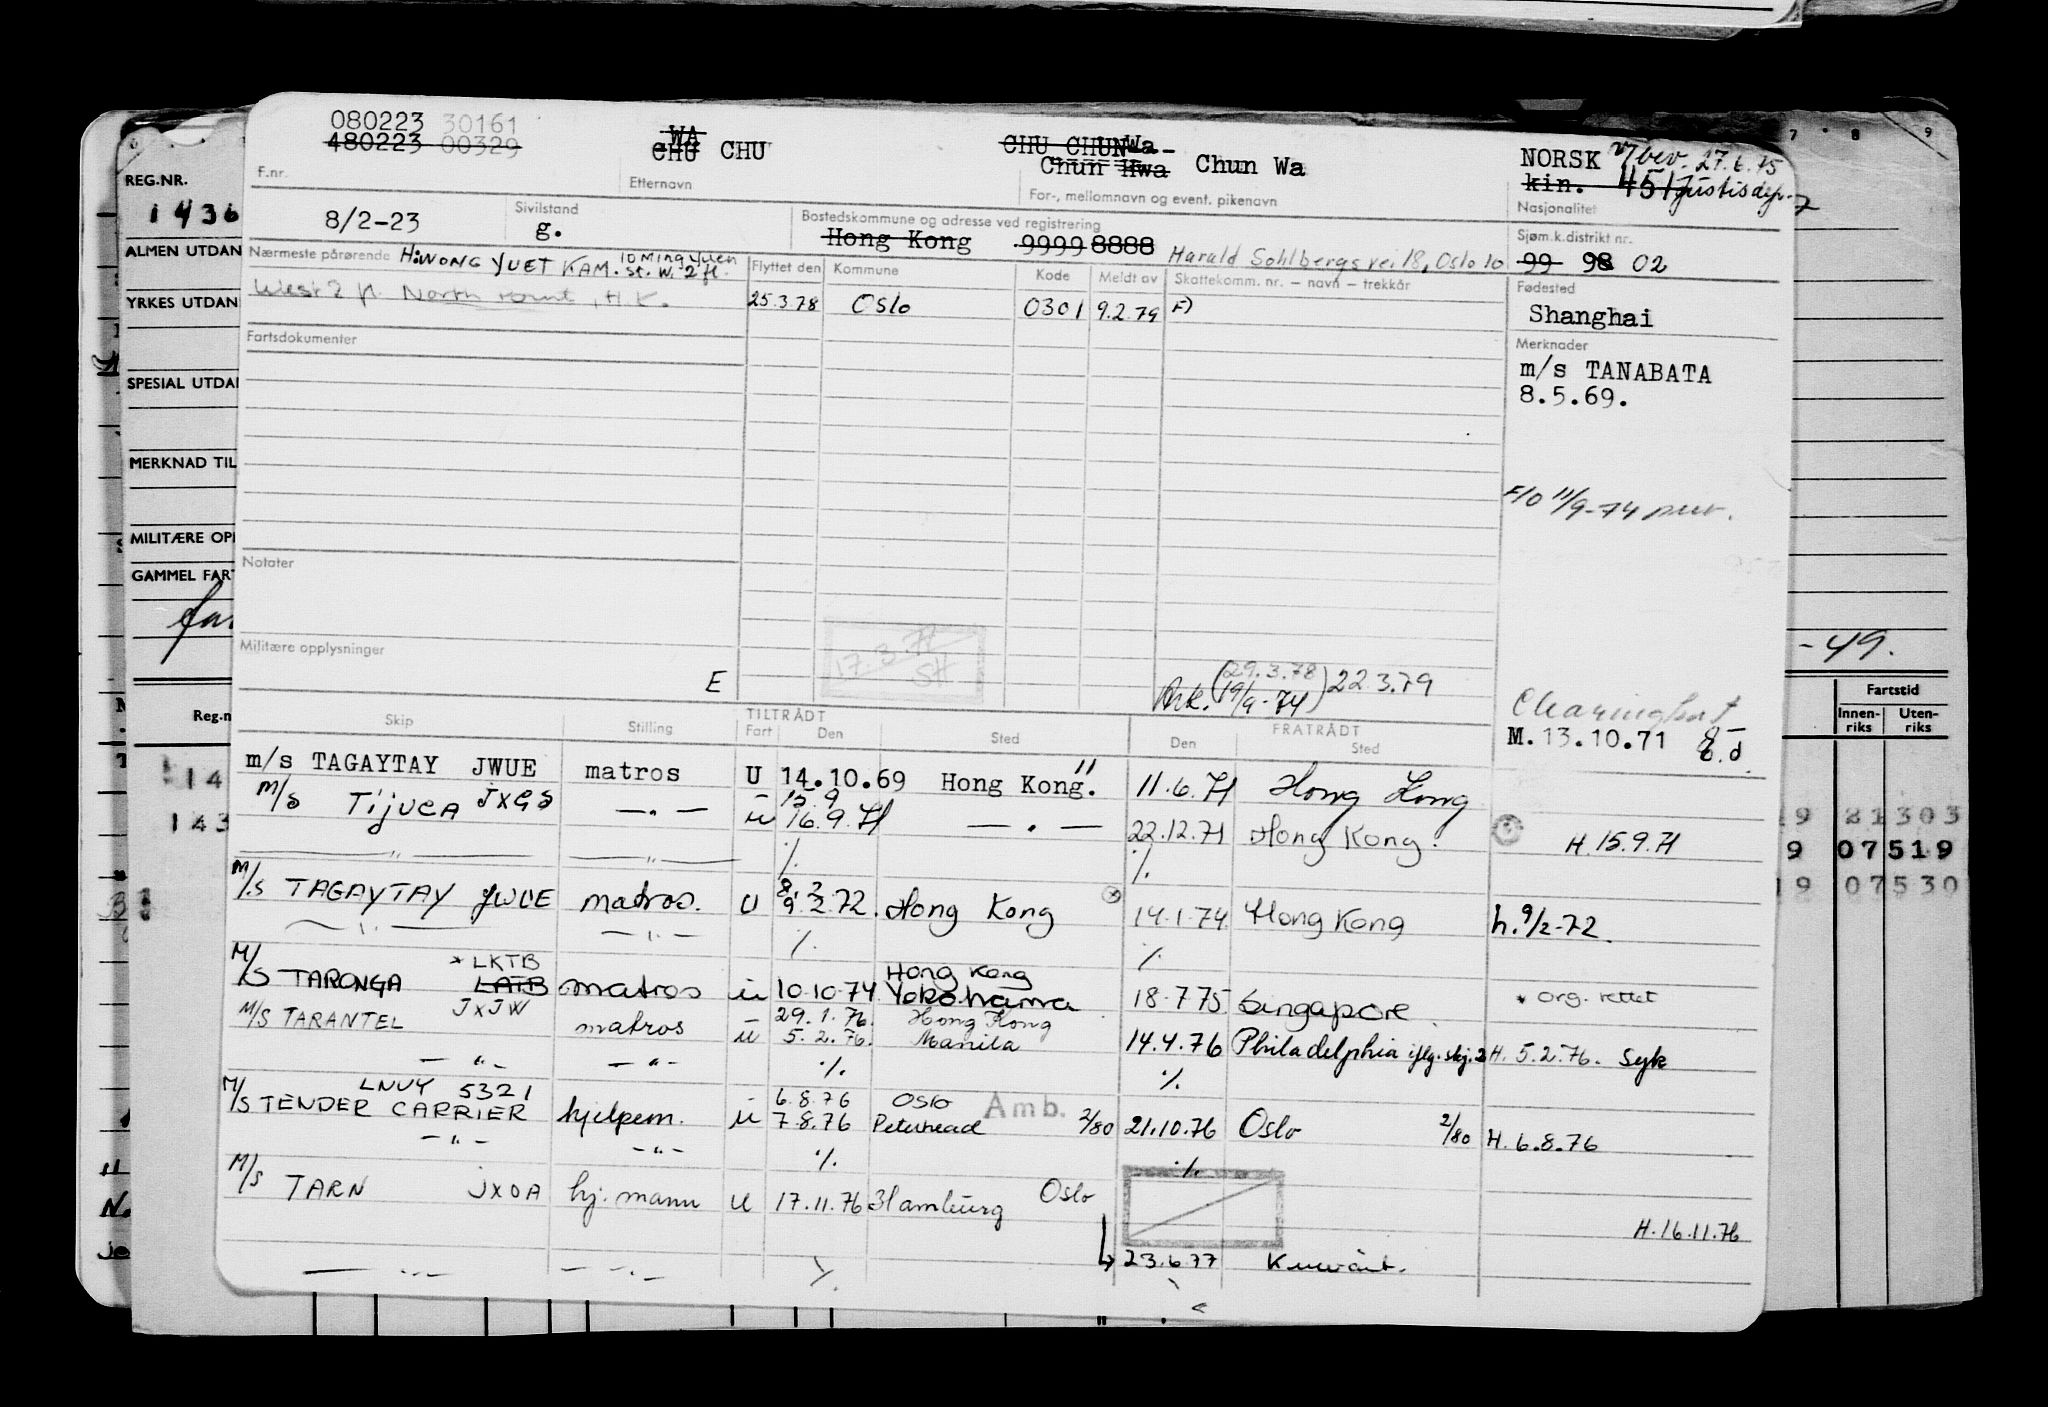 080223 30161
480223 00329
WA
CHU CHU
CHU CHUN Wa
Chun Hwa Chun Wa
NORSK v/bev. 27.6.75
kin. 451 Justisdep.
F.nr.
Etternavn
For-, mellomnavn og event. pikenavn
Nasjonalitet
8/2-23
Sivilstand
g.
Bostedskommune og adresse ved registrering
Hong Kong 9999 8888 Harald Sohlbergs vei 18, Oslo 10
Sjøm.k.distrikt nr.
99 98 02
Nærmeste pårørende H: WONG YUET KAM. 10 Ming Yuen
St. W. 2 fl.
West 2 fl. North Point, H.K.
Flyttet den
Kommune
Kode
Meldt av
Skattekomm. nr. — navn — trekkår
25.3.78 Oslo 0301 9.2.79 F)
Fødested
Shanghai
Fartsdokumenter
Merknader
m/s TANABATA
8.5.69.
F/O 11/9-74
Notater
Militære opplysninger
E
17.3.71
SH
Ark. (29.3.78
19/9-74) 22.3.79
M. 13.10.71
Skip
Stilling
TILTRÅDT
Fart
Den
Sted
FRATRÅDT
Den
Sted
m/s TAGAYTAY JWUE matros U 14.10.69 Hong Kong. 11.6.71 Hong Kong
15.9
M/S Tijuca JXGS — . — u 16.9.71 — . — 22.12.71 Hong Kong. H. 15.9.71
— " — — " — ./. ./.
8.2
M/S TAGAYTAY JWUE matros. U 9.2.72. Hong Kong 14.1.74 Hong Kong h. 9/2-72.
— " — — " — ./. ./.
* LKTB Hong Kong
M/S TARONGA LATB matros u 10.10.74 Yokohama 18.7.75 Singapore * org. rettet
JXJW 29.1.76. Hong Kong
M/S TARANTEL matros u 5.2.76. Manila 14.4.76 Philadelphia iflg. skj. 2 H. 5.2.76. Syk
— " — — " — ./. ./.
LNVY 5321 6.8.76 Oslo
M/S TENDER CARRIER hjelpem. u 7.8.76 Peterhead Amb. 2/80 21.10.76 Oslo 2/80 H. 6.8.76
— " — — " — ./. ./.
M/S TARN JXOA hj. mann u 17.11.76 Hamburg Oslo
H. 16.11.76
23.6.77 Kuwait.
— " — — " —
REG.NR.
1436
ALMEN UTDAN
YRKES UTDAN
SPESIAL UTDAN
MERKNAD TIL
MILITÆRE OPP
GAMMEL FART
Reg.n
14
143
7 8 9
-49.
Fartstid
Innen-
riks
Uten-
riks
19 21303
9 07519
19 07530